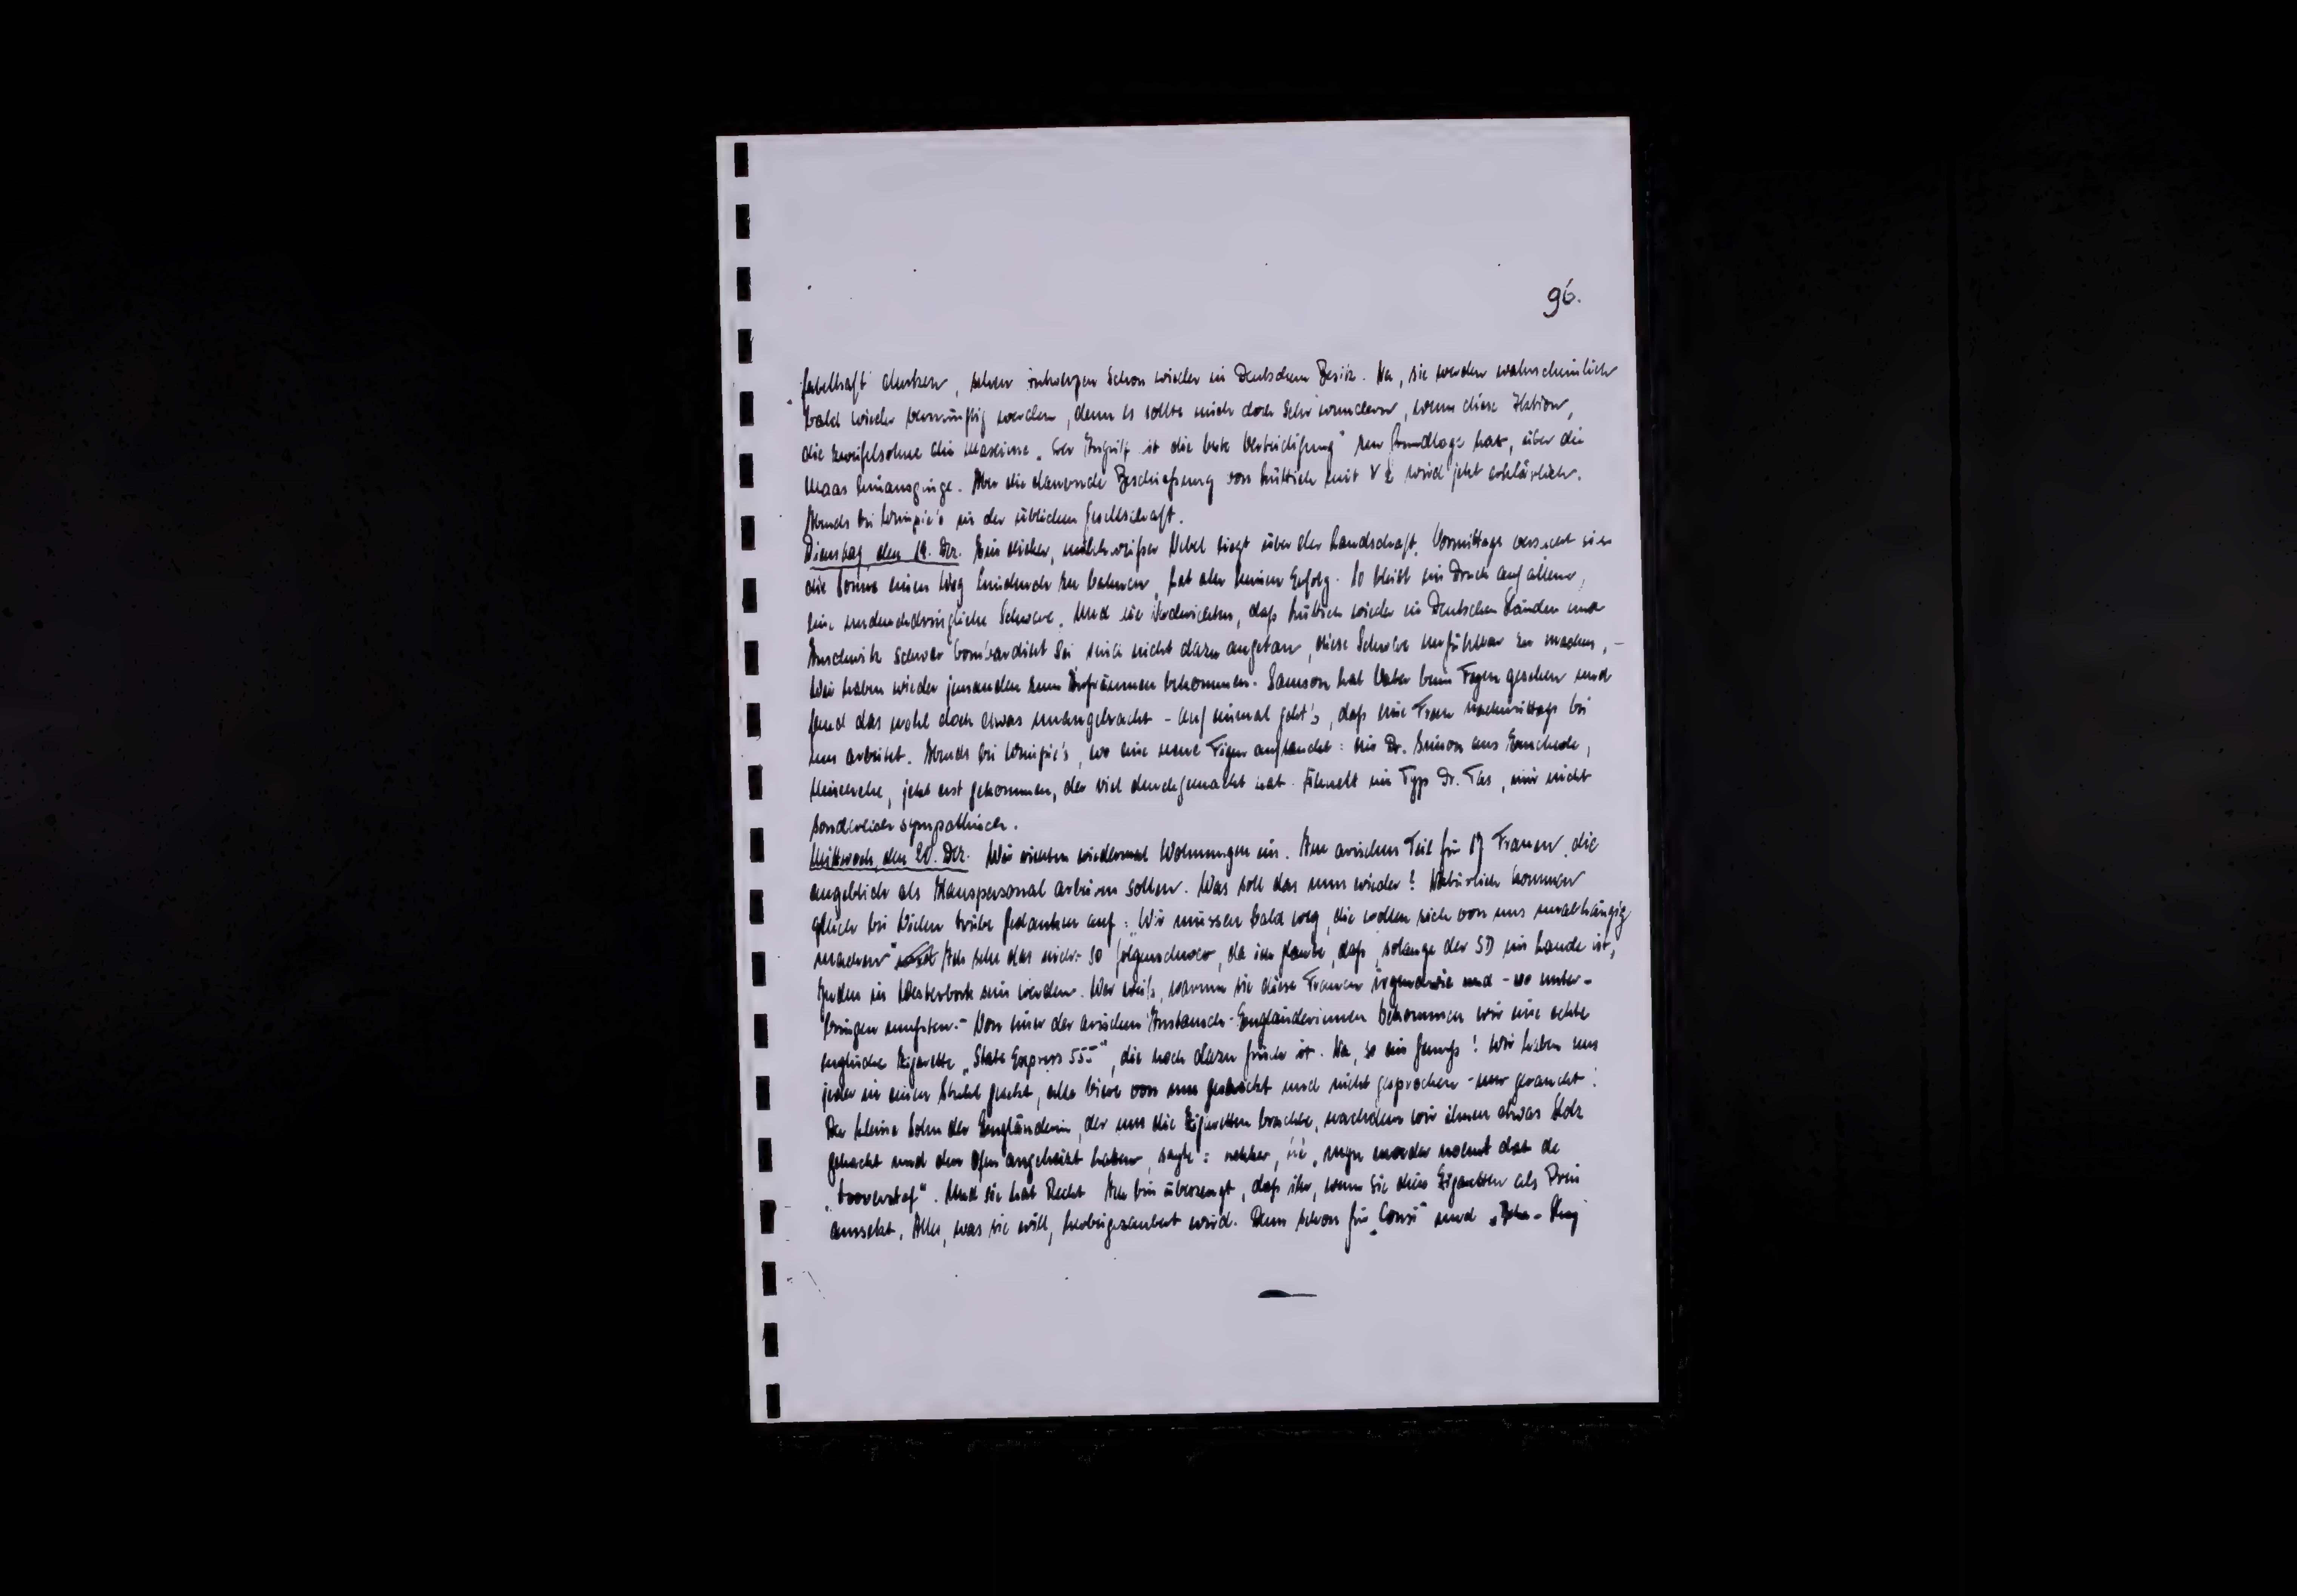 96.
fabelhaft denken, sehen Antwerpen schon wieder in Deutschem Besitz. Na, sie werden wahrscheinlich
bald wieder vernünftig werden, denn es sollte mich doch sehr wundern, wenn diese Aktion,
die zweifelsohne die Maxime „Der Angriff ist die beste Verteidigung" zur Grundlage hat, über die
Maas hinausginge. Aber die dauernde Beschießung von Lüttich mit V 2 wird jetzt erklärlich.
Abends bei in der üblichen Gesellschaft.
Dienstag, den 19. Dez. Ein dicker, milchweißer Nebel liegt über der Landschaft. Vormittags versucht sich
die Sonne einen Weg hindurch zu bahnen, hat aber keinen Erfolg. So bleibt ein Druck auf allem,
eine undurchdringliche Schwere. Und die daß Lüttich wieder in Deutschen Händen und
Auschwitz schwer bombardiert sei sind nicht dazu angetan, diese Schwere unfühlbar zu machen. –
Wir haben wieder jemanden zum Aufräumen bekommen. Samson hat Vater beim Fegen gesehen und
fand das wohl doch etwas unangebracht – auf einmal geht's, daß eine Frau nachmittags bei
uns arbeitet. Abends bei wo eine neue Figur auftaucht: ein Dr. aus Enschede,
jetzt erst gekommen, der viel durchgemacht hat. Ähnelt im Typ Dr. Tas, mir nicht
sonderlich sympathisch.
Mittwoch, den 20. Dez. Wir richten wiedermal Wohnungen ein. Im arischen Teil für 17 Frauen, die
angeblich als Hauspersonal arbeiten sollen. Was soll das nun wieder! Natürlich kommen
gleich bei Vielen trübe Gedanken auf: „Wir müssen bald weg, die wollen sich von uns unabhängig
machen" Ich sehe das nicht so folgenschwer, da ich glaube, daß, solange der SD im Lande ist,
Juden in Westerbork sein werden. Wer weiß, warum sie diese Frauen irgendwie und -wo unter-
bringen mußten. – Von einer der arischen Austausch-Engländerinnen bekommen wir eine echte
englische Zigarette „State Express 555", die noch dazu frisch ist. Na, so ein Genuß! Wir haben uns
jeder in einen Stuhl gesetzt, alle Viere von uns gestreckt und nicht gesprochen – nur geraucht!
Der kleine Sohn der Engländerin, der uns die Zigaretten brachte, nachdem wir ihnen etwas Holz
gehackt und den Ofen angeheizt haben, sagte: lekker, hè, mijn moeder noemt dat de
„toverstaf". Und sie hat Recht. Ich bin überzeugt, daß ihr, wenn sie diese Zigaretten als Preis
aussetzt, Alles, was sie will, herbeigezaubert wird. Denn schon für „Consi" und